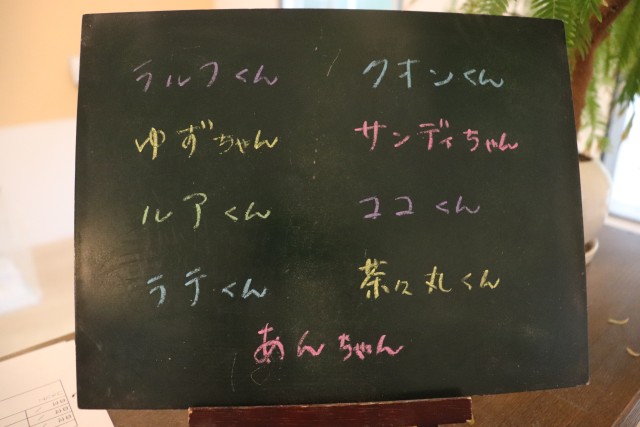 ラルフくん クオンくん
ゆずちゃん サンディちゃん
ルアくん ココくん
ラテくん 茶々丸くん
あんちゃん